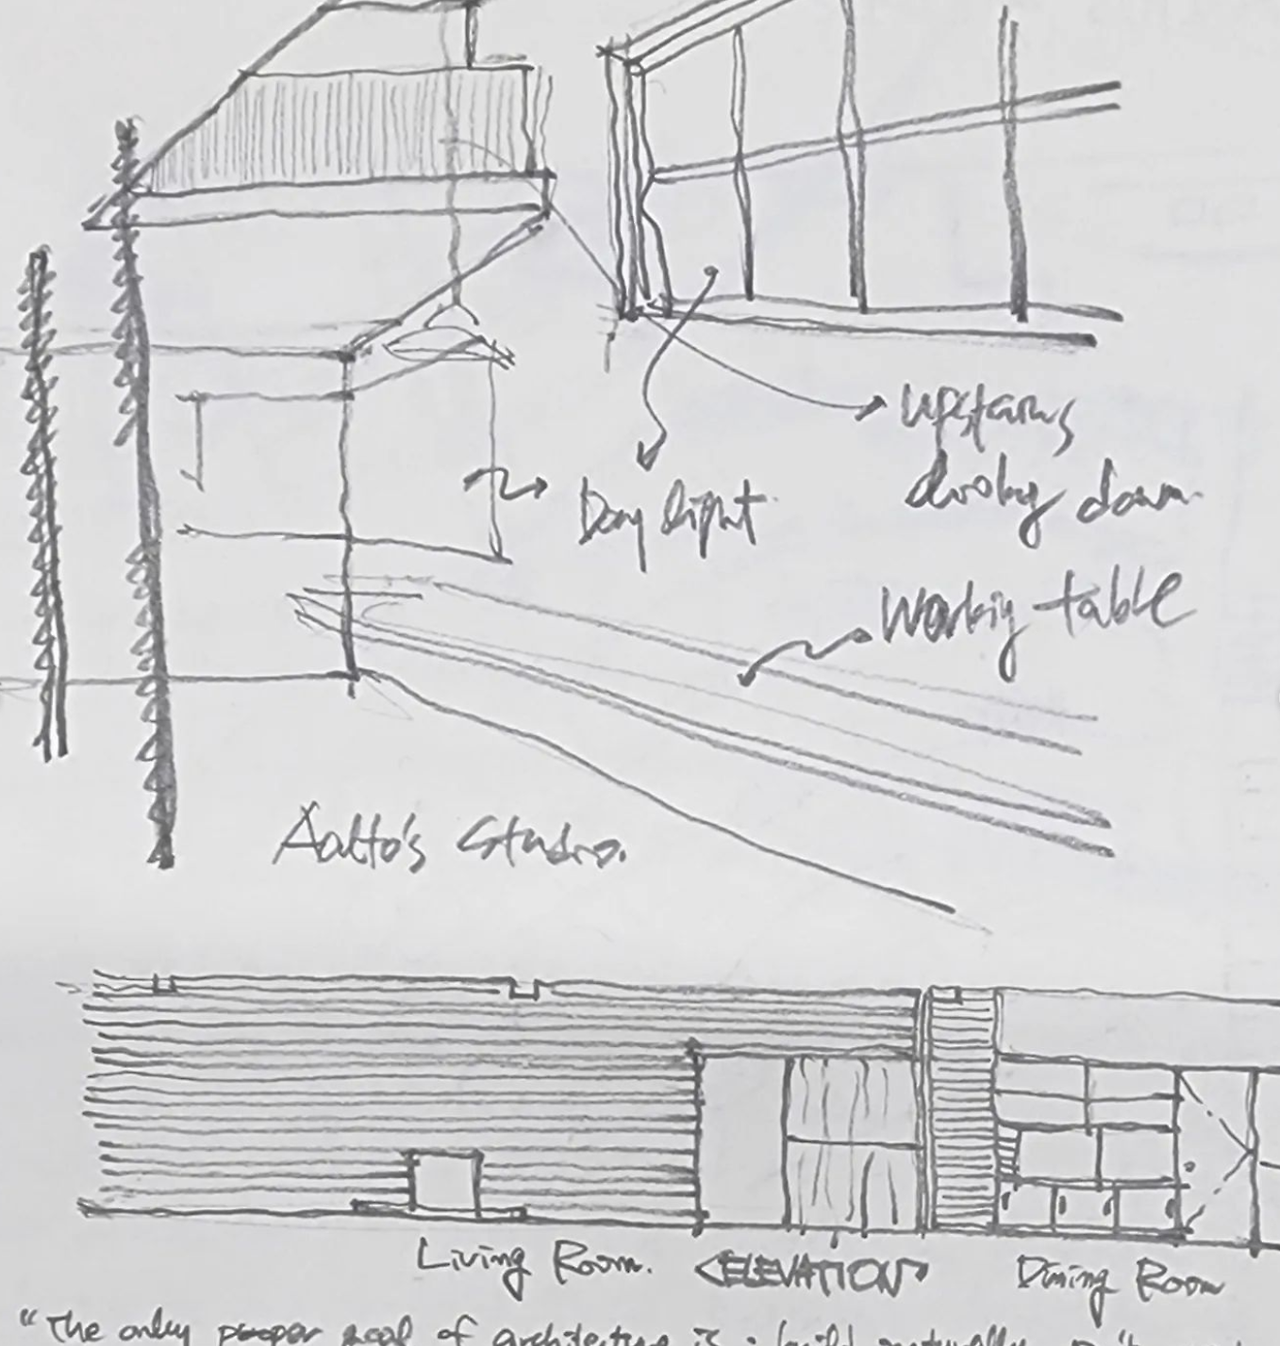 Upstairs
looking down
Day light
Working table
Aalto's Studio.
Living Room. <ELEVATION> Dining Room
"The only proper goal of architecture is : build naturally